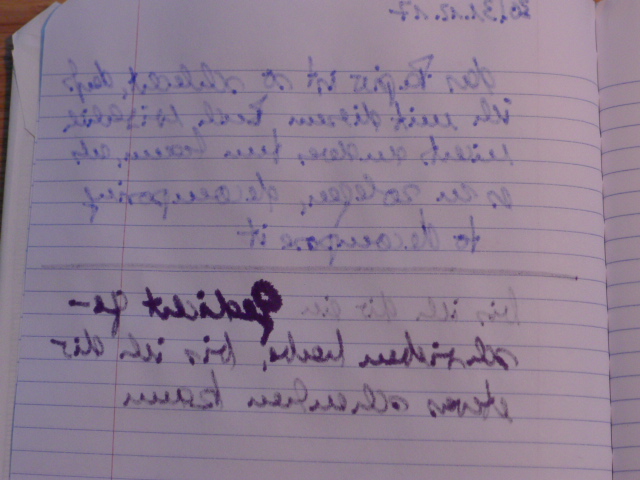 31.12.17
das Papier ist so schlecht, daß
ich mit diesem Buch wirklich
nichts anderes tun kann, als
es zu zerlegen, decomposing
to decompose it
bis ich dir ein Gedicht ge-
schrieben habe, bis ich dir
etwas schenken kann